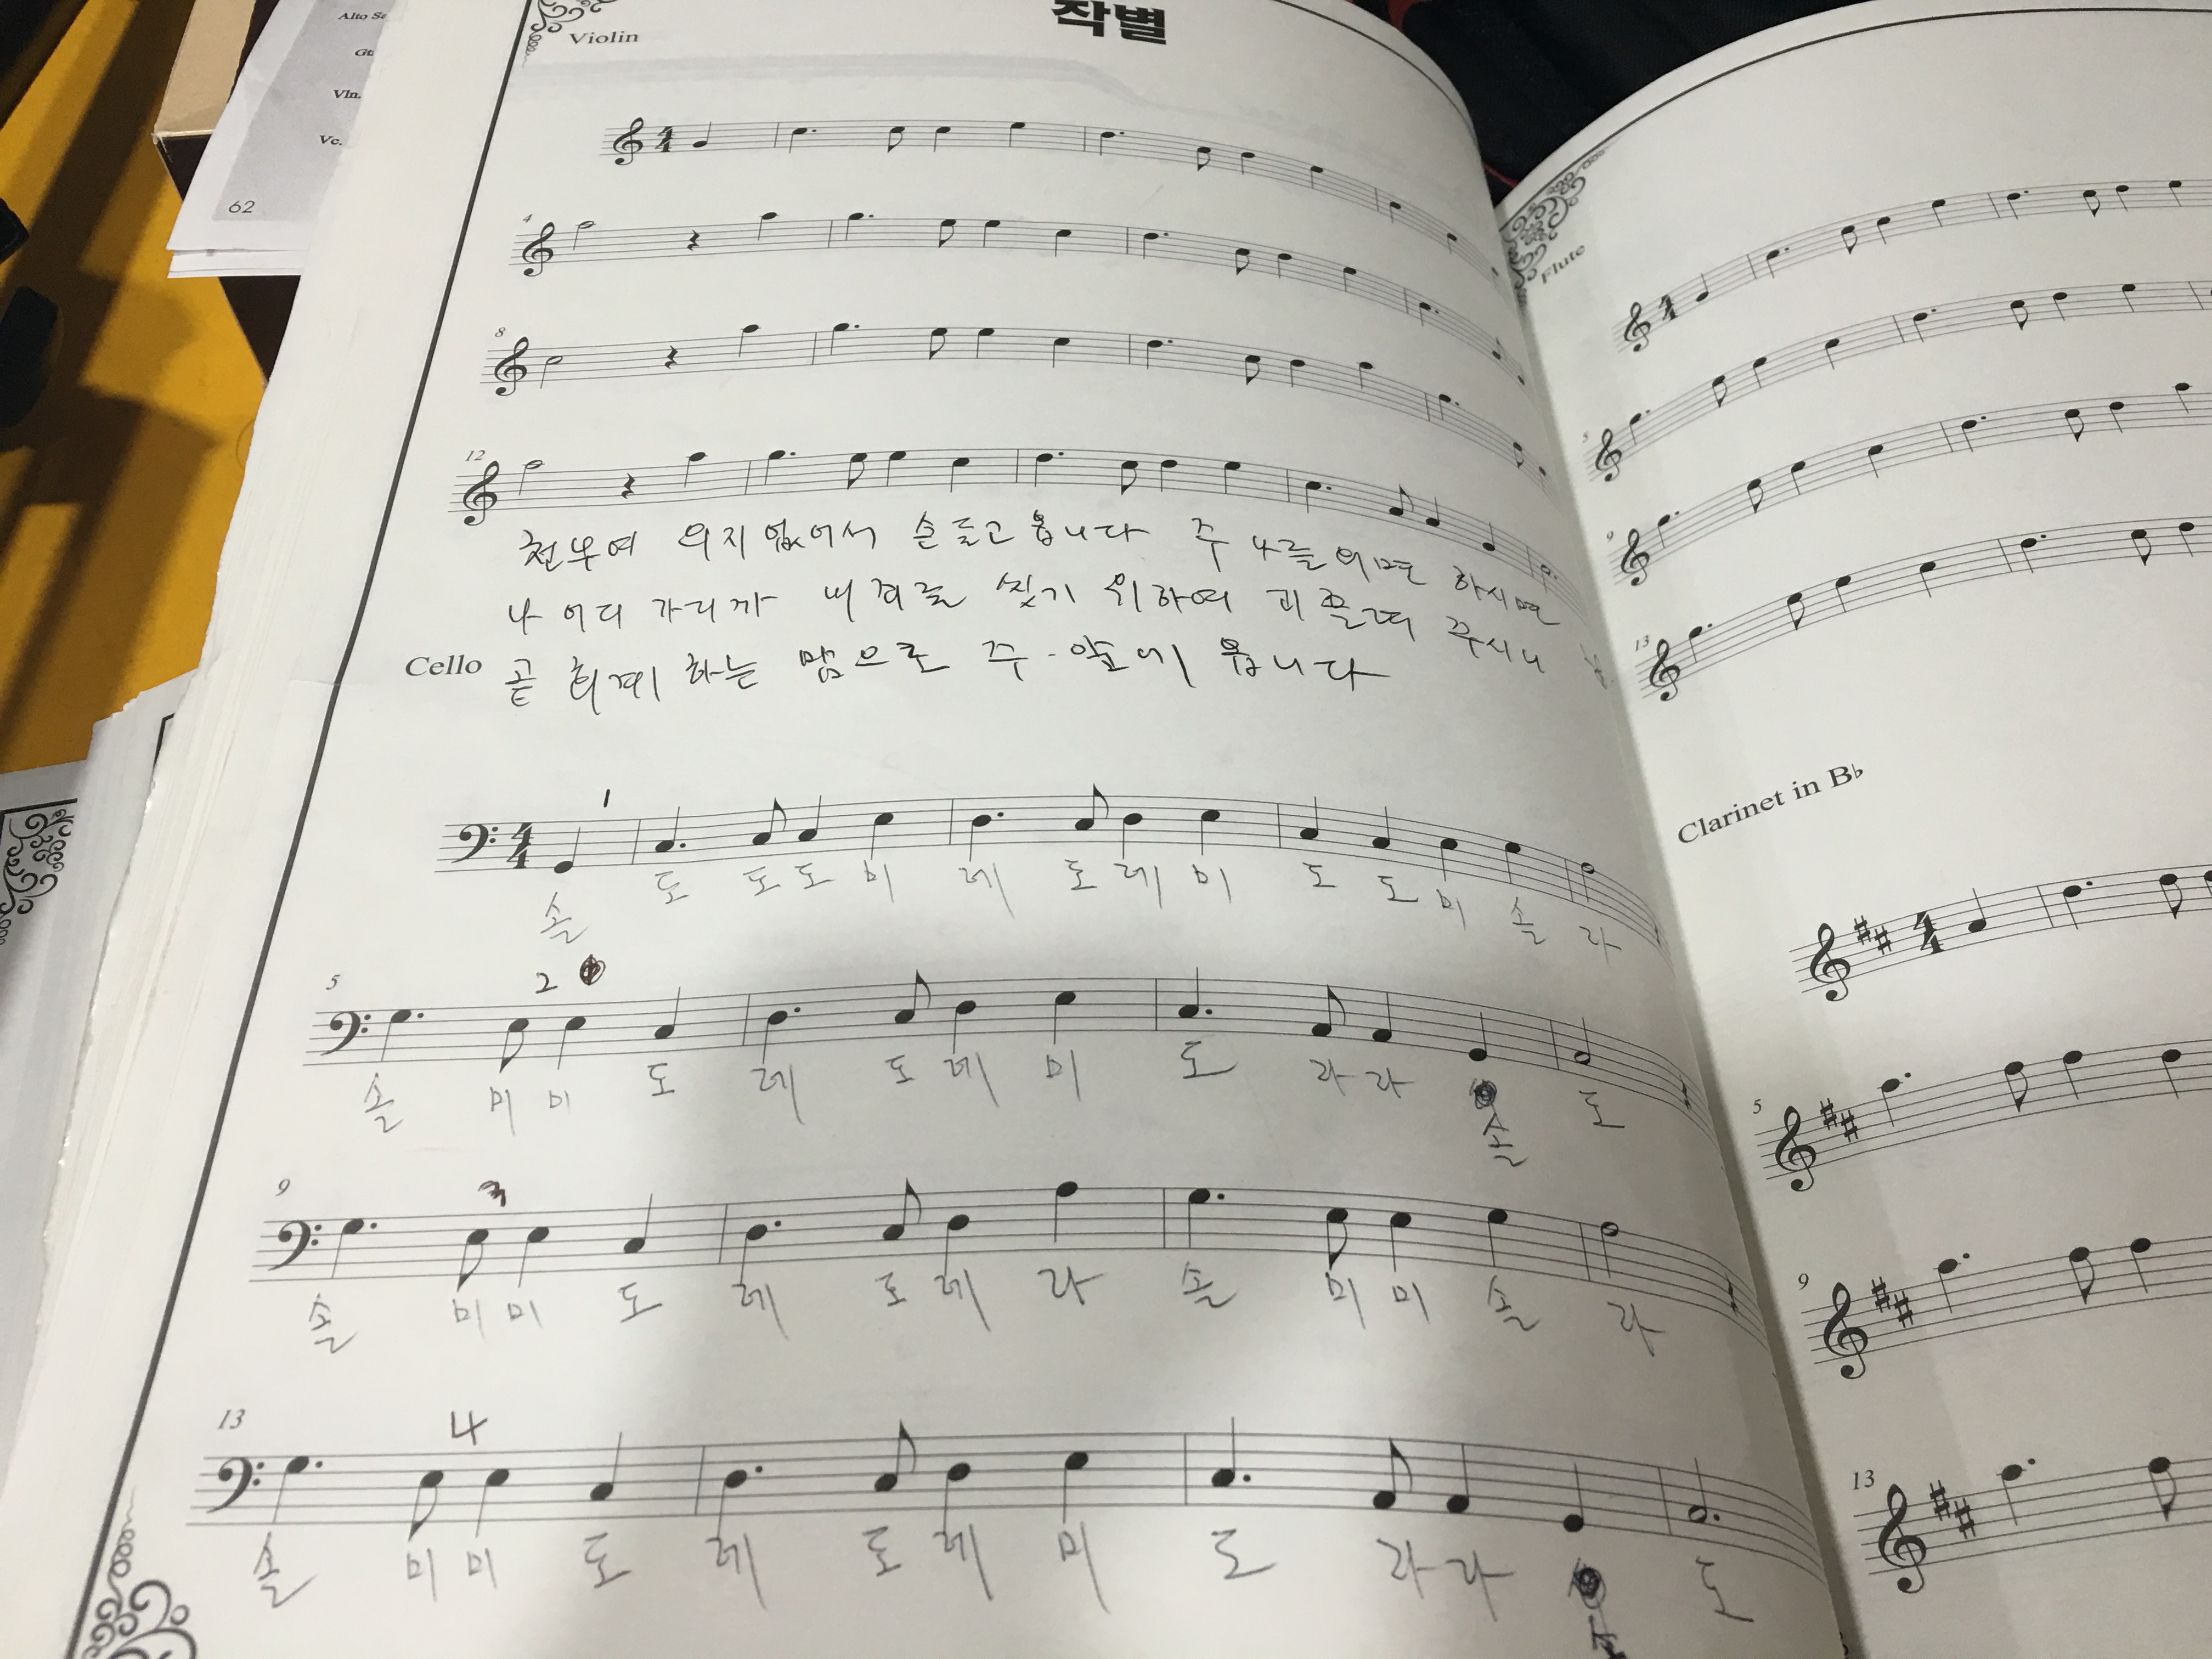 작별
Violin
Alto Sa
Gt
Vln.
Vc.
62
4
4
8
12
천부여 의지 없어서 손 들고 옵니다 주 나를 외면 하시면
나 어디 가리까 내 죄를 씻기 위하여 피 흘려 주시니
Cello 곧 회계 하는 맘으로 주 앞에 옵니다
1
4
4
솔 도 도 도 미 레 도 레 미 도 도 미 솔 라
5 2
솔 미 미 도 레 도 레 미 도 라 라 솔 도
9 3
솔 미 미 도 레 도 레 라 솔 미 미 솔 라
13 4
솔 미 미 도 레 도 레 미 도 라 라 도
Flute
4
4
5
9
13
Clarinet in B♭
4
4
5
9
13